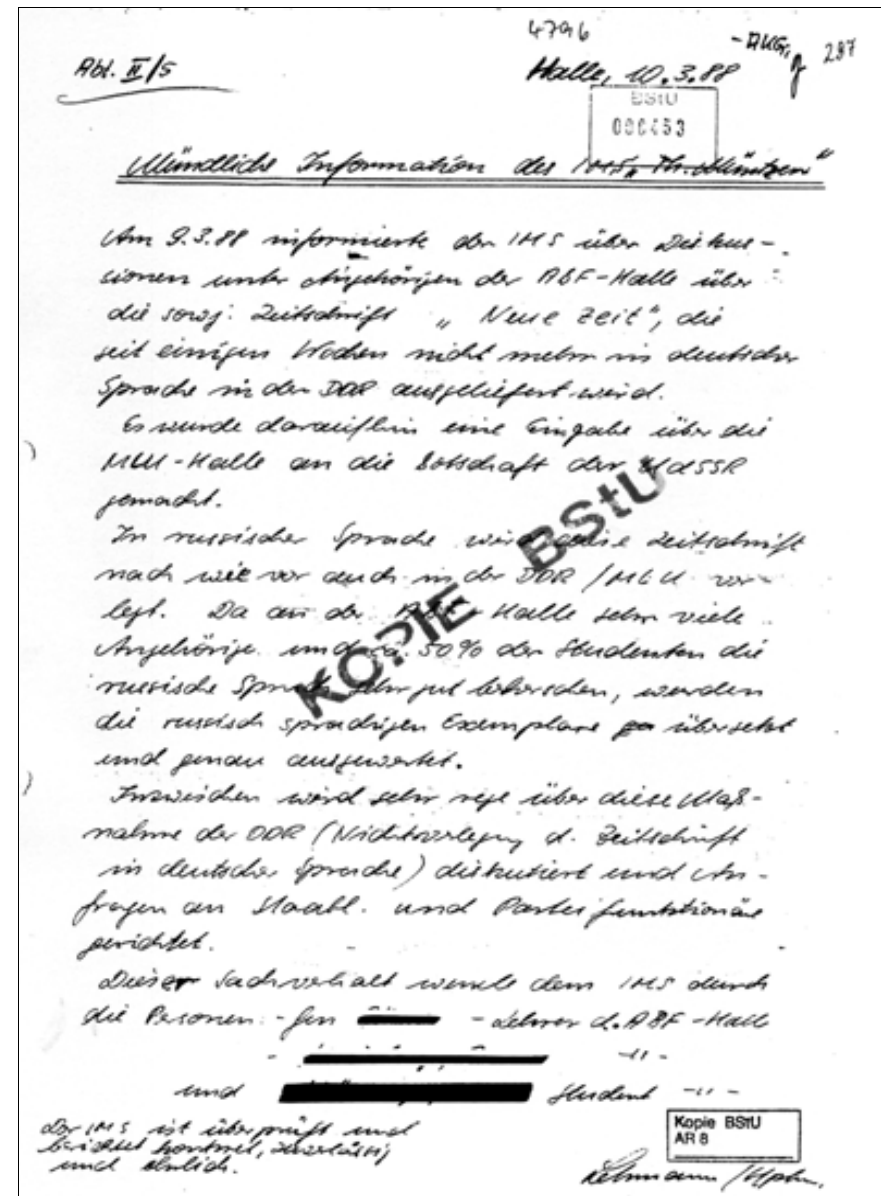 4796
- AKG, 297
Abt. II/5
Halle, 10.3.88
BStU
000453
Mündliche Information des IMS „Th. Müntzer“
Am 9.3.88 informierte der IMS über Diskus-
sionen unter Angehörigen der ABF-Halle über
die sowj. Zeitschrift „Neue Zeit“, die
seit einigen Wochen nicht mehr in deutscher
Sprache in der DDR ausgeliefert wird.
Es wurde daraufhin eine Eingabe über die
MLU-Halle an die Botschaft der UdSSR
gemacht.
In russischer Sprache wird die Zeitschrift
nach wie vor auch in der DDR / MLU ver-
legt. Da an der ABF-Halle sehr viele
Angehörige und ca. 50% der Studenten die
russische Sprache sehr gut beherschen, werden
die russisch sprachigen Exemplare übersetzt
und genau ausgewertet.
Inzwischen wird sehr rege über diese Maß-
nahme der DDR (Nichtverlegung d. Zeitschrift
in deutscher Sprache) diskutiert und An-
fragen an Staatl. und Parteifunktionäre
gerichtet.
Dieser Sachverhalt wurde dem IMS durch
die Personen: - Gen - Lehrer d. ABF-Halle
- -"-
und Student -"-
Der IMS ist überprüft und
berichtet konkret, zuverlässig
und ehrlich.
KOPIE BStU
Kopie BStU
AR 8
Lehmann / Hptm.